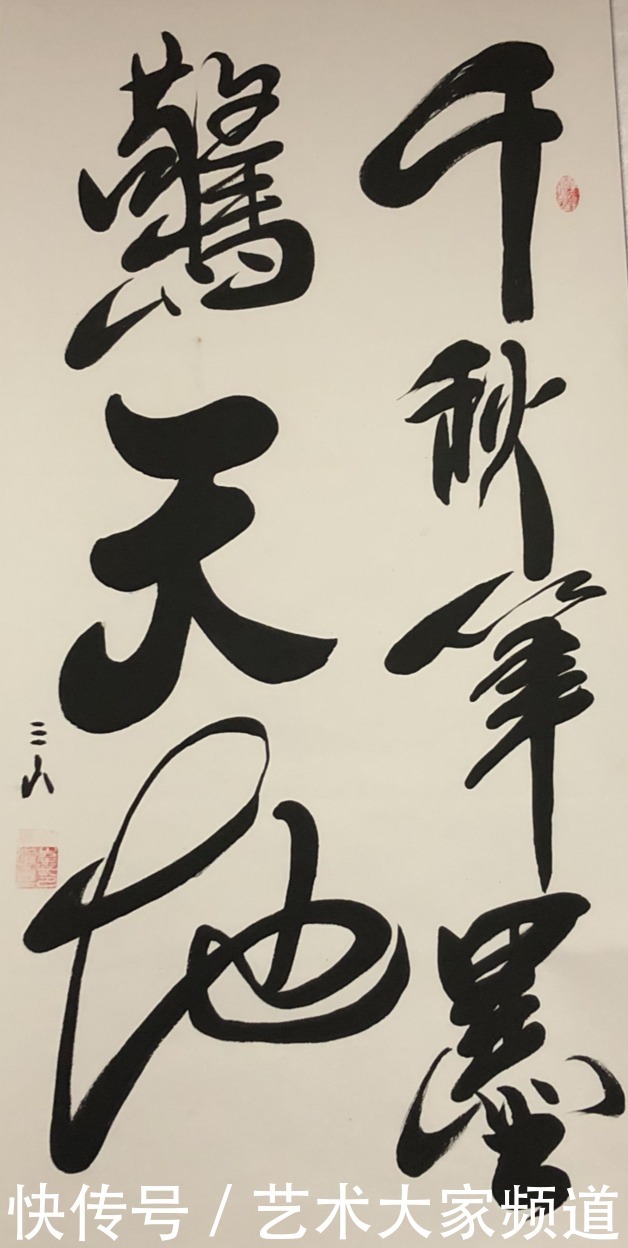 千秋筆墨
驚天地
三山
快传号 / 艺术大家频道